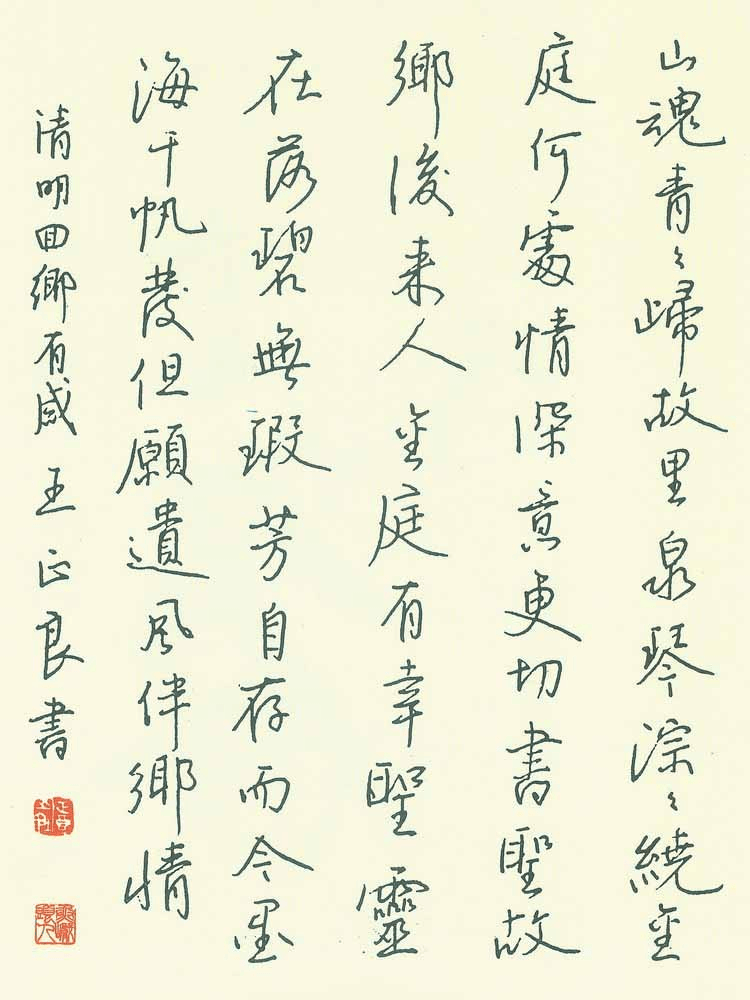 山魂青々歸故里泉琴淙々繞金
庭何處情深意更切書聖故
鄉後来人金庭有幸聖靈
在落碧無瑕芳自存而今墨
海千帆發但願遺風伴鄉情
清明回鄉有感王正良書